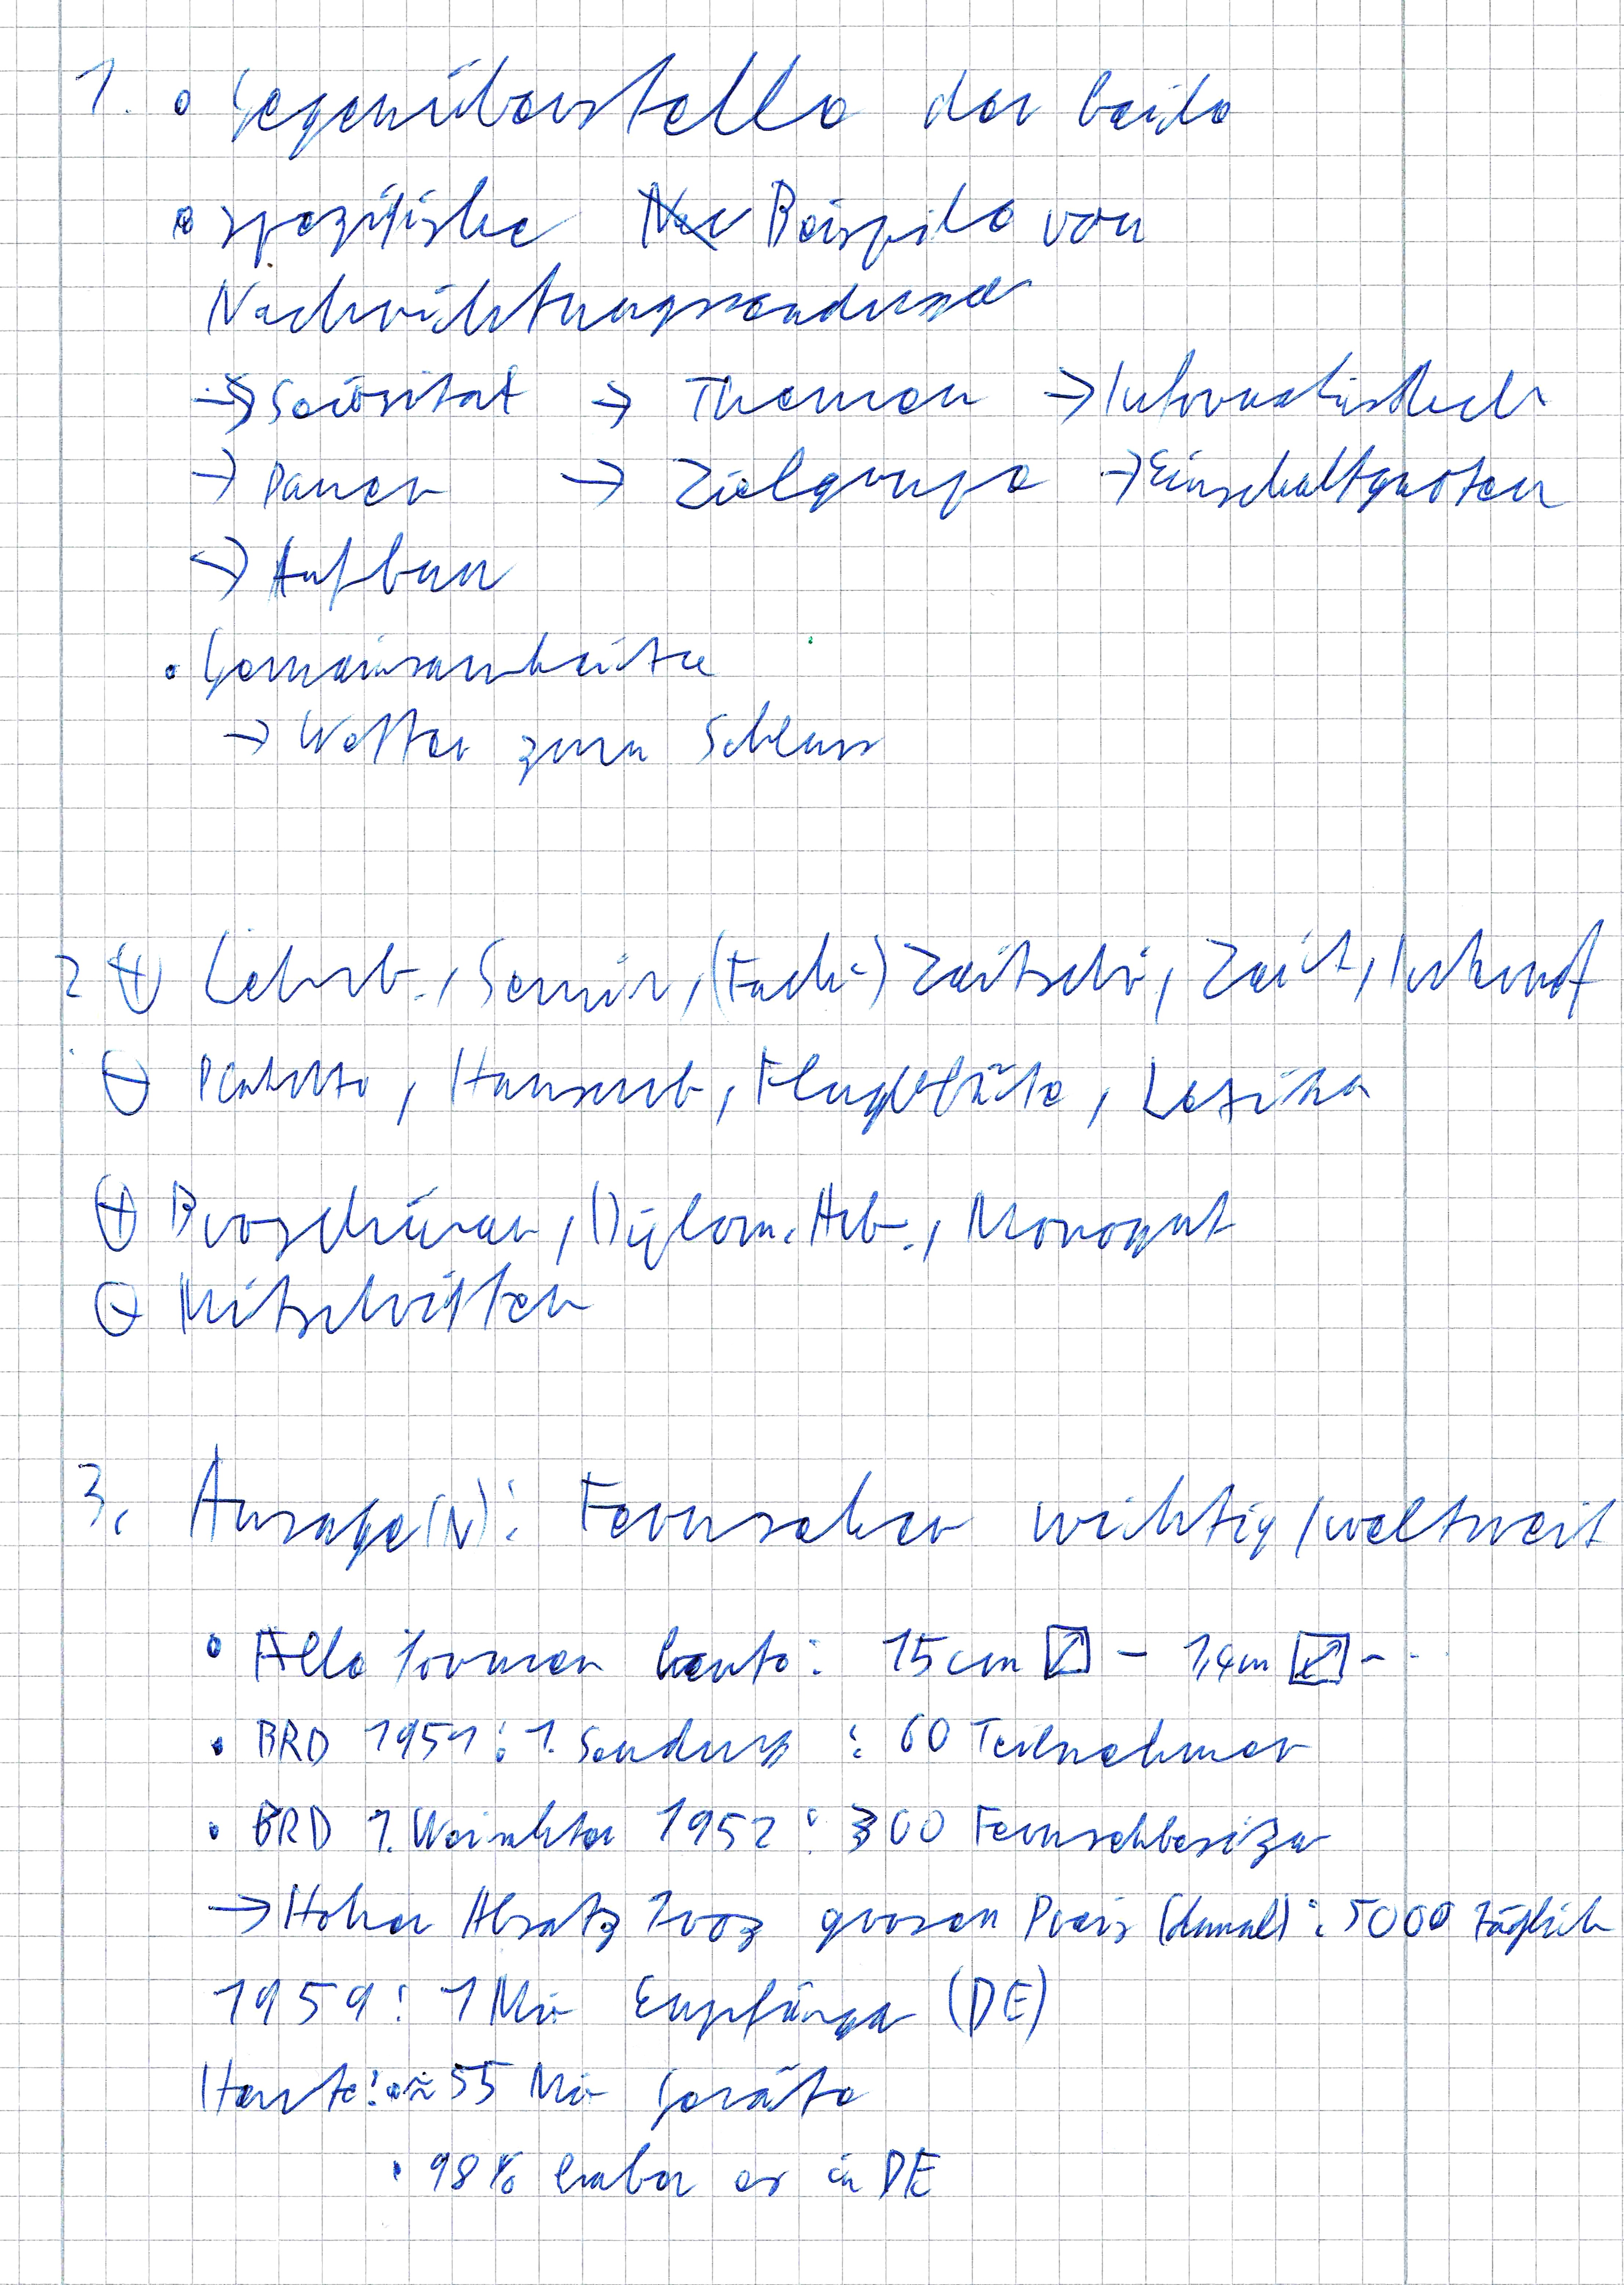 1. • Gegenüberstelle der beide
• spezifische Beispile von
Nachrichtungssendunge
→ Seiösität → Themen →
→ Dauer → Zielgrupe → Einschaltquoten
→ Aufbau
• Gemeinsamkeite
→ Wetter zum Schluss
2 ⊕ Lehrb., Semin, (Fach-) Zeitschr, Zeit,
⊖ Plakate, Hauswb, Flugbläte, Lexika
⊕ Broschüren, Diplom. Arb.,
⊖ Mitschriften
3. Aussage(N): Fernseher wichtig/weltweit
• Alle Formen heute: 15cm – 1,4m - ...
• BRD 1951: 1. Sendung : 60 Teilnehmer
• BRD 1. Weinahten 1952: 300 Fernsehbesizer
→ Hoher Absatz Trozz grosen Preis (damal): 5000 täglich
1959: 1 Mio Empfänger (DE)
Heute: ≈ 55 Mio Geräte
• 98% haben es in DE